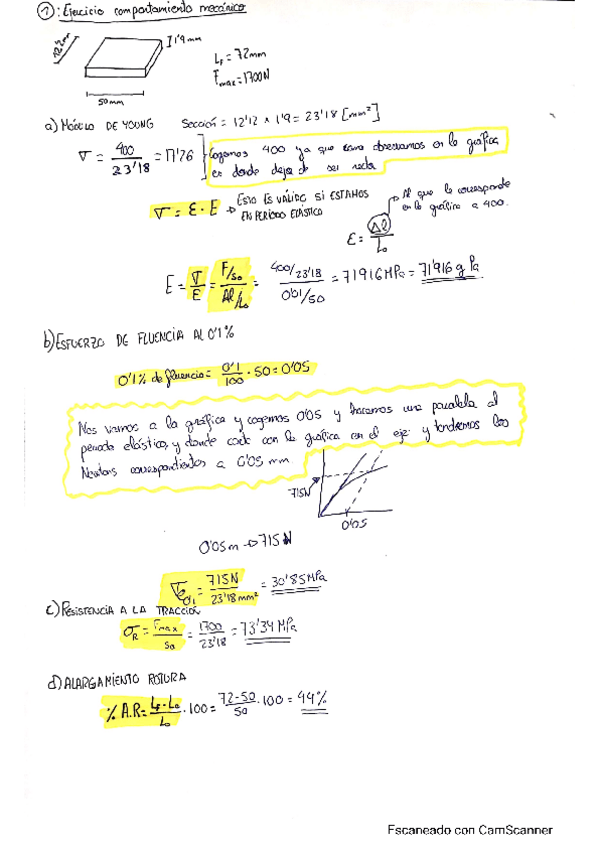 ①: Ejercicio comportamiento mecánico
1'9 mm
50mm
Lf = 72mm
Fmax = 1700N
a) MÓDULO DE YOUNG Sección = 12'12 x 1'9 = 23'18 [mm²]
σ = 400/23'18 = 17'26 Cogemos 400 ya que como observamos en la gráfica
es donde deja de ser recta
σ = ε · E → ESTO ES VÁLIDO SI ESTAMOS
EN PERÍODO ELÁSTICO
Al que le corresponde
en la gráfica a 400.
ε = Δl/L₀
E = σ/ε = F/S₀ / Δl/L₀ = 400/23'18 / 0'01/50 = 71916 MPa = 71'916 gPa
b) ESFUERZO DE FLUENCIA AL 0'1%
0'1% de fluencia = 0'1/100 · 50 = 0'05
Nos vamos a la gráfica y cogemos 0'05 y hacemos una paralela al
periodo elástico, y donde corte con la gráfica en el eje y tendremos los
Newtons correspondientes a 0'05 mm
715N
0'05
0'05m → 715N
σe0,1 = 715N/23'18mm² = 30'85MPa
c) RESISTENCIA A LA TRACCIÓN
σR = Fmax/S₀ = 1700/23'18 = 73'34 MPa
d) ALARGAMIENTO ROTURA
% A.R = Lf-L₀/L₀ · 100 = 72-50/50 · 100 = 44%
Escaneado con CamScanner